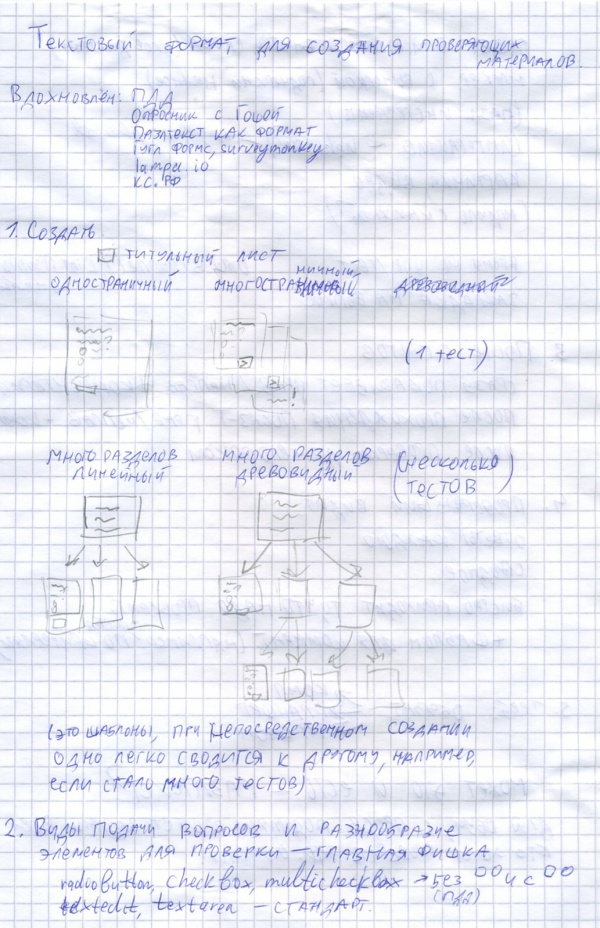 Текстовый формат для создания проверяющих
материалов.
Вдохновлён: ПДД
Опросник с Гошей
Плэйнтекст как формат
Гугл формс, surveymonkey
lampa.io
КС.РФ
1. Создать
титульный лист
одностраничный многостраничный (1 тест)
много разделов линейный
много разделов древовидный
(несколько тестов)
(это шаблоны, при непосредственном создании
одно легко сводится к другому, например,
если стало много тестов)
2. Виды подачи вопросов и разнообразие
элементов для проверки — главная фишка
radiobutton, checkbox, multicheckbox → без и с
(ПДД)
textedit, textarea — стандарт.